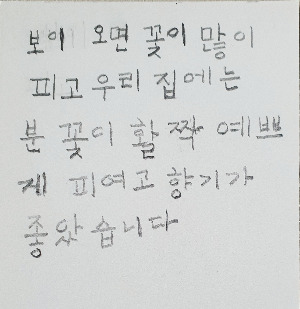 보이 오면 꽃이 많이
피고 우리 집에는
분 꽃이 활 짝 예쁘
게 피여고 향기가
좋았습니다